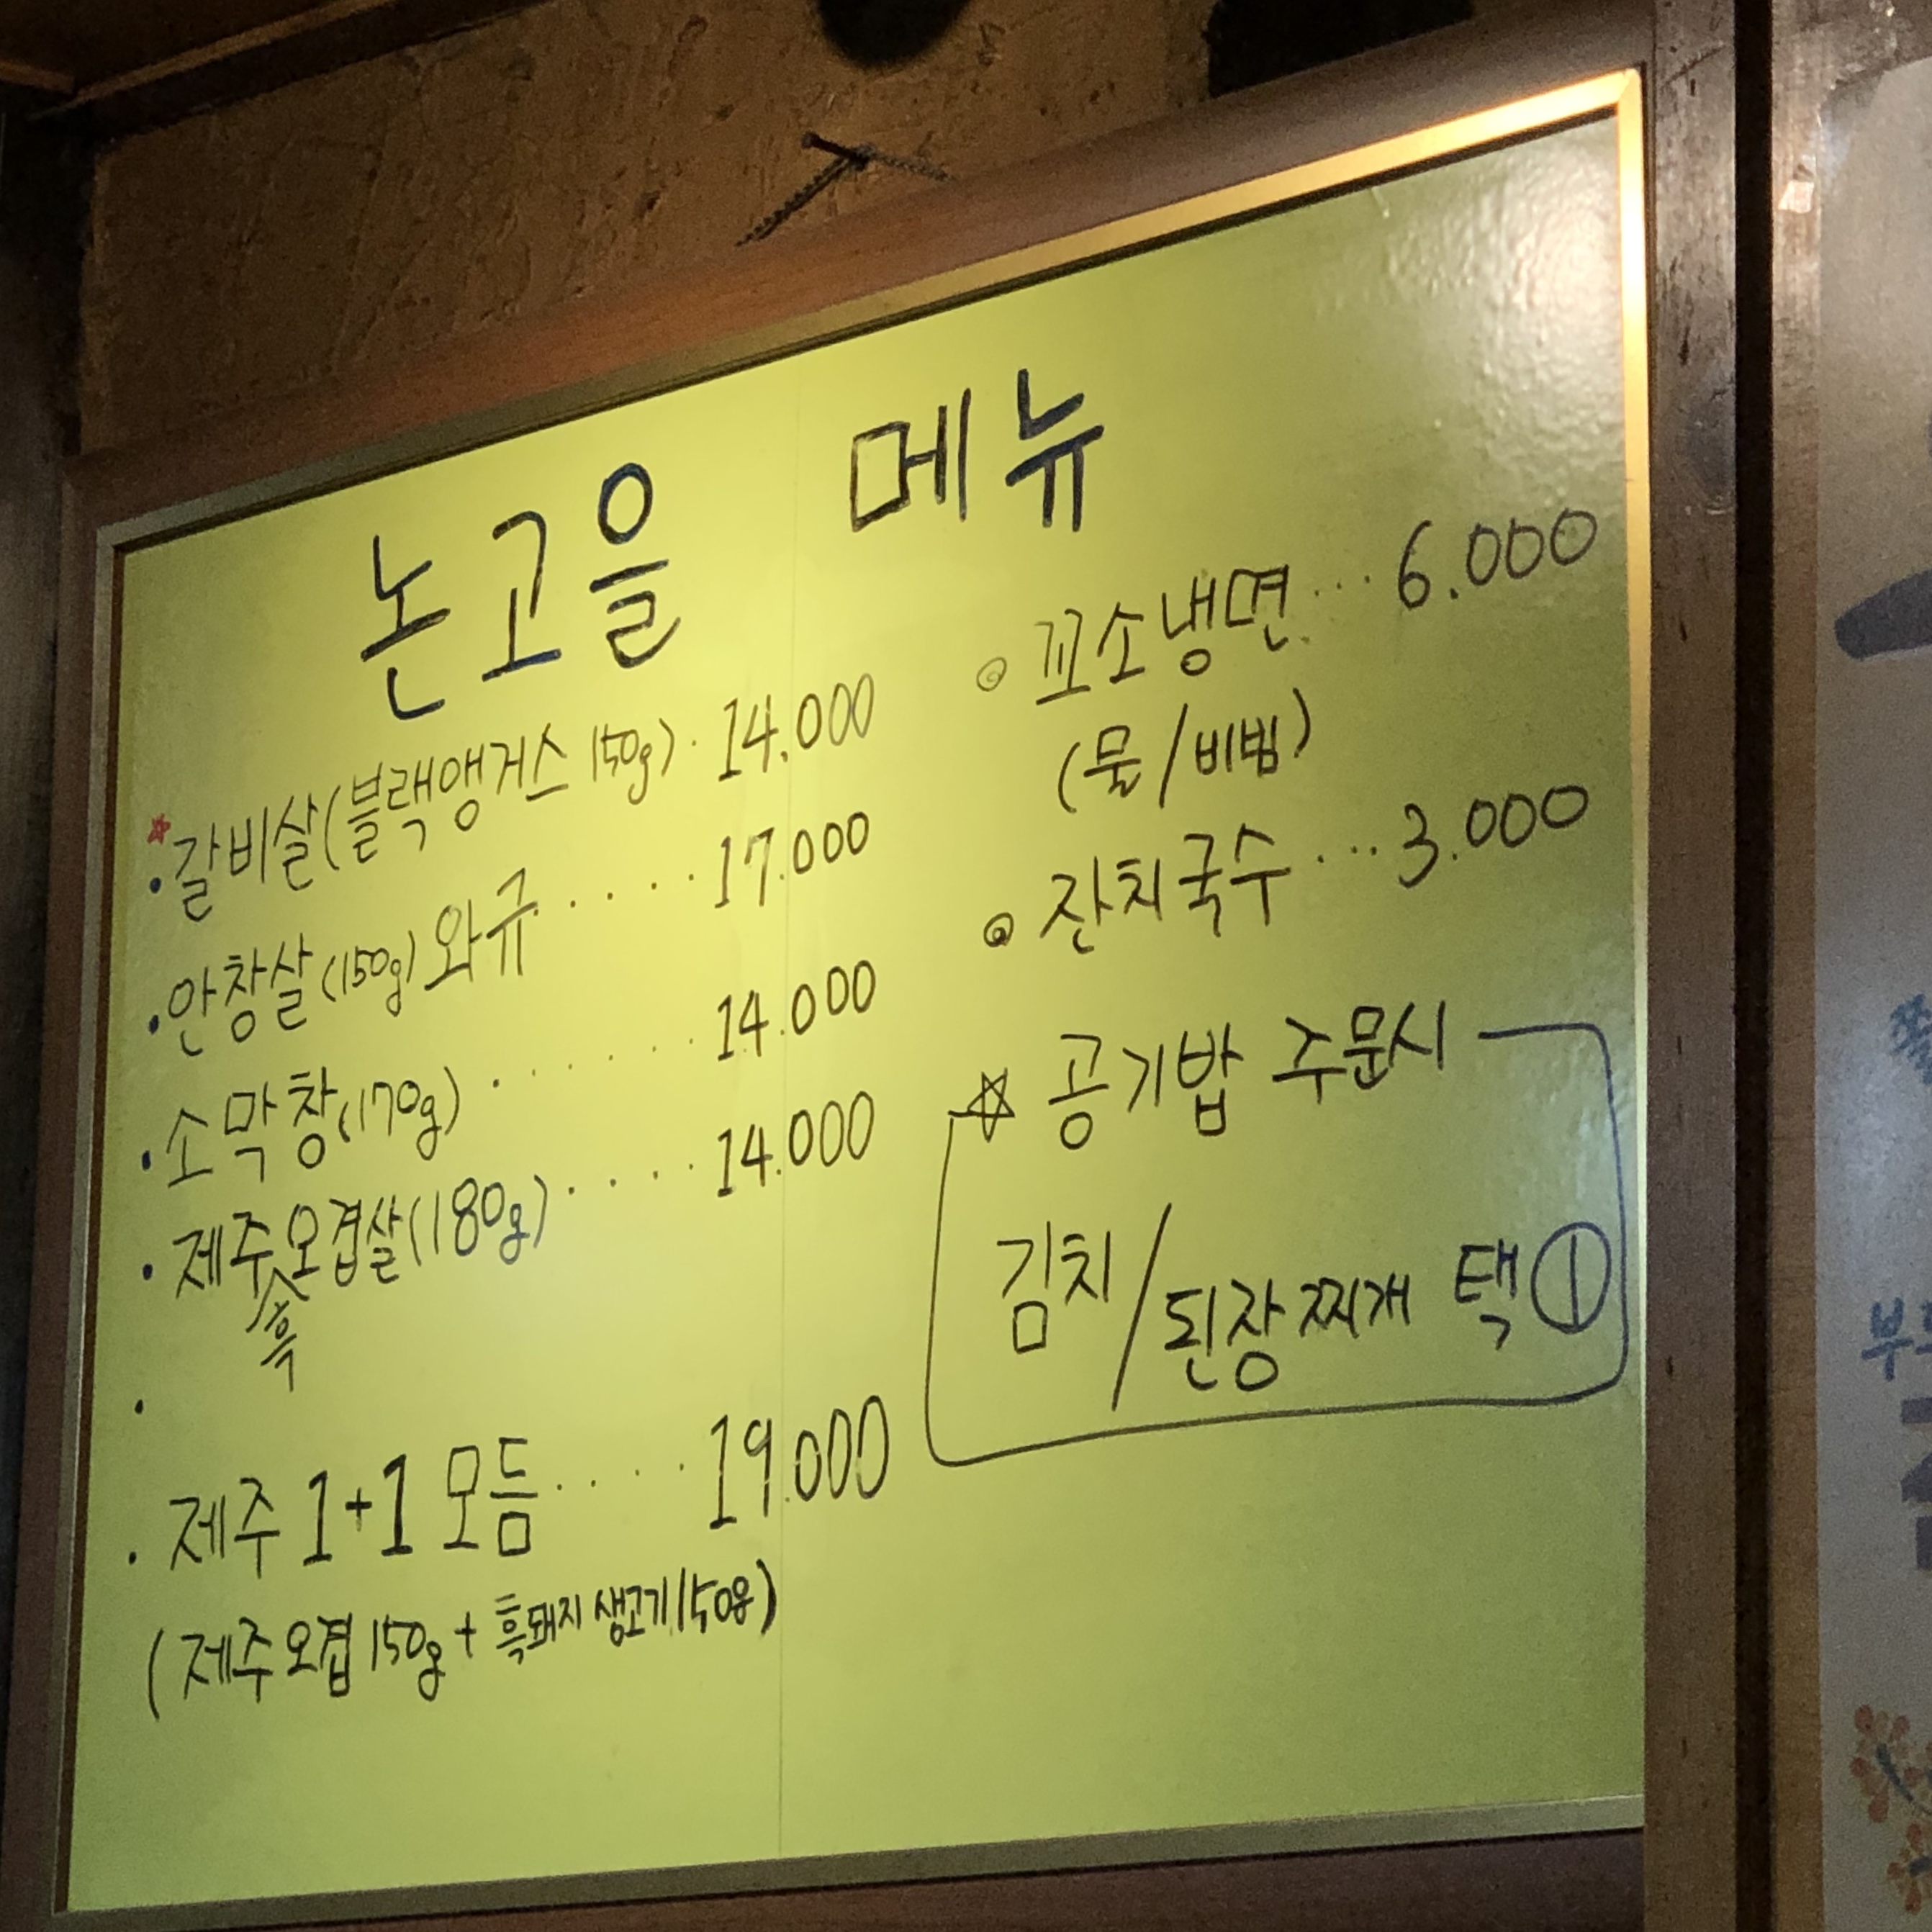 논고을 메뉴
갈비살(블랙앵거스 150g) · 14.000
안창살(150g) 와규 ····· 17.000
소막창(170g) ······ 14.000
제주오겹살(180g) ···· 14.000
흑
제주 1+1 모듬 ····· 19.000
(제주오겹 150g + 흑돼지 생고기 150g)
꼬소냉면 ··· 6.000
(물/비빔)
잔치국수 ··· 3.000
☆ 공기밥 주문시
김치/된장찌개 택①